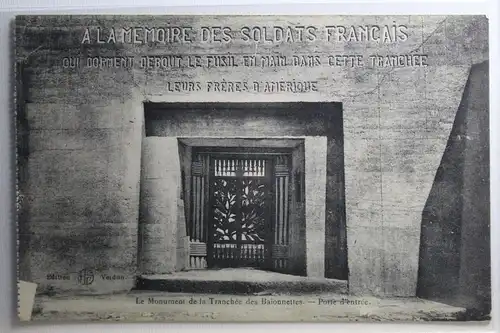 A LA MEMOIRE DES SOLDATS FRANCAIS
QUI DORMENT DEBOUT LE FUSIL EN MAIN DANS CETTE TRANCHEE
LEURS FRÈRES D'AMERIQUE
Edition Verdun
Le Monument de la Tranchée des Baïonnettes. — Porte d'entrée.